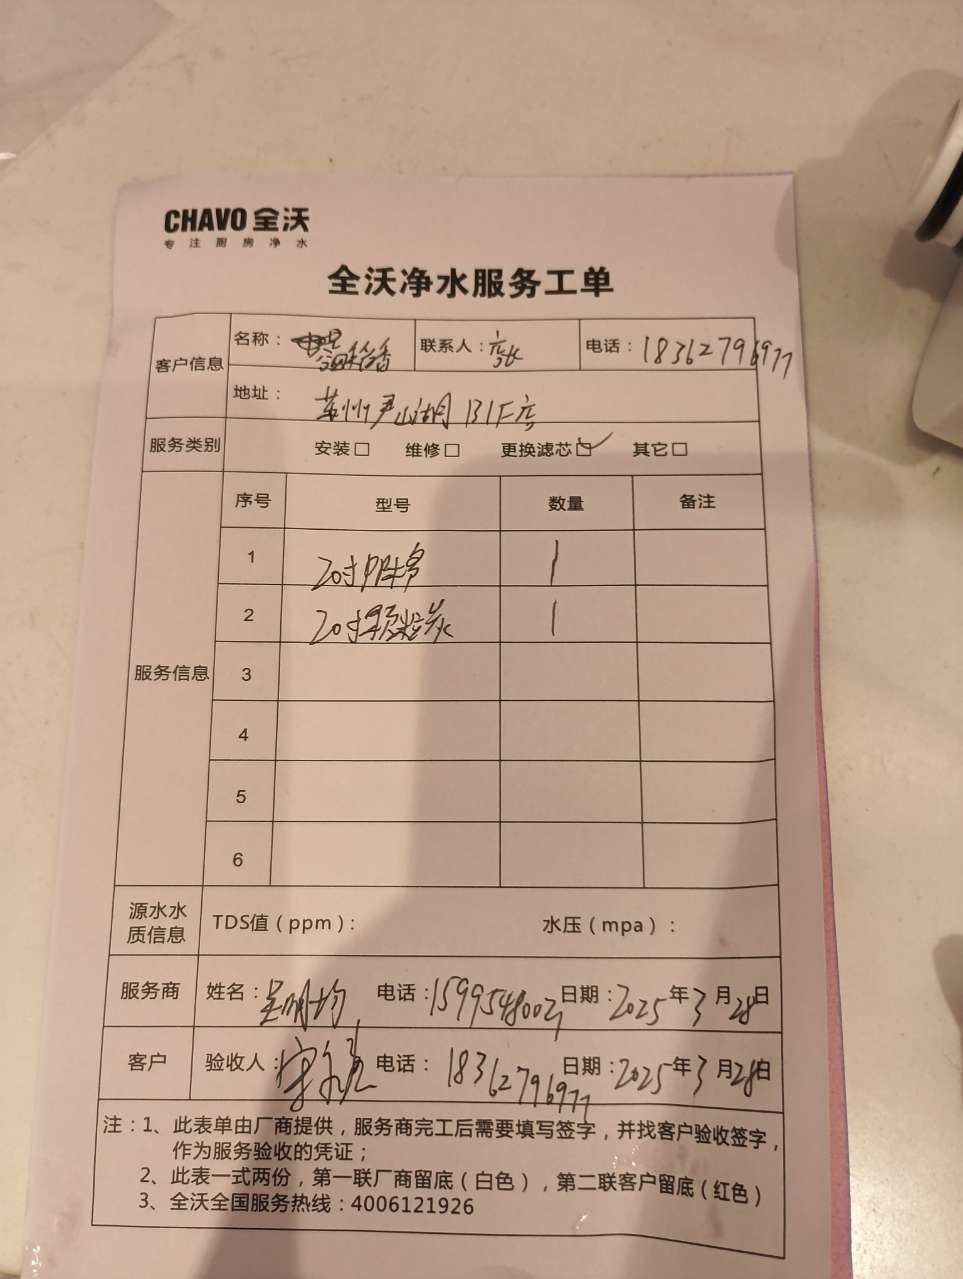 CHAVO 全沃
专注厨房净水
全沃净水服务工单
客户信息 名称： 联系人：店长 电话：18362796977
地址：苏州尹山湖 B1F店
服务类别 安装□ 维修□ 更换滤芯☑ 其它□
服务信息 序号 型号 数量 备注
1 20寸PP棉 1
2 20寸颗粒炭 1
3
4
5
6
源水水质信息 TDS值（ppm）： 水压（mpa）：
服务商 姓名： 电话： 日期：2025年3月28日
客户 验收人： 电话：18362796977 日期：2025年3月28日
注：1、此表单由厂商提供，服务商完工后需要填写签字，并找客户验收签字，
作为服务验收的凭证；
2、此表一式两份，第一联厂商留底（白色），第二联客户留底（红色）
3、全沃全国服务热线：4006121926